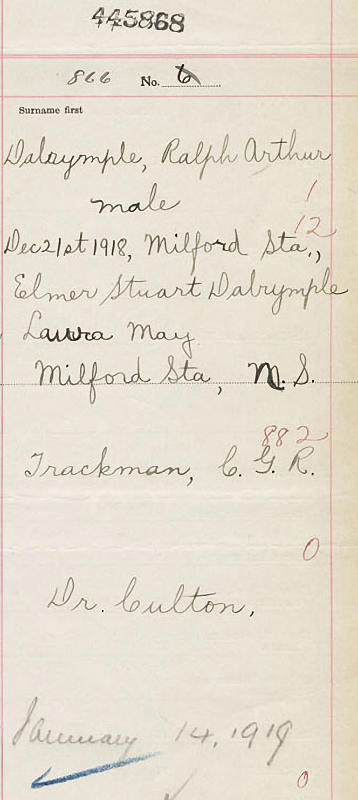 445868
866 No. 6
Surname first
Dalrymple, Ralph Arthur
male
1
12
Dec 21st 1918, Milford Sta.,
Elmer Stuart Dalrymple
Laura May
Milford Sta, N. S.
882
Trackman, C. G. R.
0
Dr. Culton,
January 14, 1919
0